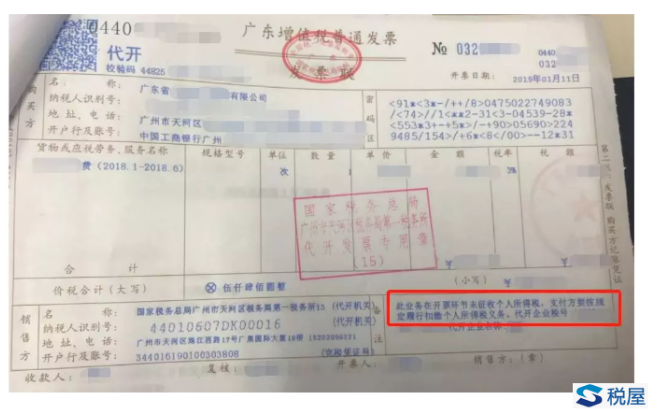 0440
广东增值税普通发票
№ 032
0440
032
代开
校验码 44825
发票联
开票日期: 2019年01月11日
购买方
名 称: 广东省 有限公司
纳税人识别号:
地 址、电 话: 广州市天河区
开户行及账号: 中国工商银行广州
密码区
<91*<3*-/++/8>0475022749083
/<74>//1<**2-31<3-04539-28*
<553*3+-+5*>/-+90>05690>224
9485/154>/+6*8</00>--12*31
货物或应税劳务、服务名称
规格型号
单位
数 量
单 价
金 额
税率
税 额
费(2018.1-2018.6)
次
1
3%
国家税务总局
代开发票专用章
(15)
合 计
¥
¥
价税合计(大写)
⊗ 伍仟肆佰圆整
(小写)
¥
销售方
名 称: 国家税务总局广州市天河区税务局第一税务所15 (代开机关)
纳税人识别号: 44010607DK00016 (代开机关)
地 址、电 话: 广州市天河区珠江西路17号广晟国际大厦
开户行及账号: 344016190100303808 (完税凭证号)
备注
此业务在开票环节未征收个人所得税,支付方要按规
定履行扣缴个人所得税义务,代开企业税号
代开企业名称
收款人:
复核:
开票人:
销售方:(章)
第二联:发票联 购买方记账凭证
税屋